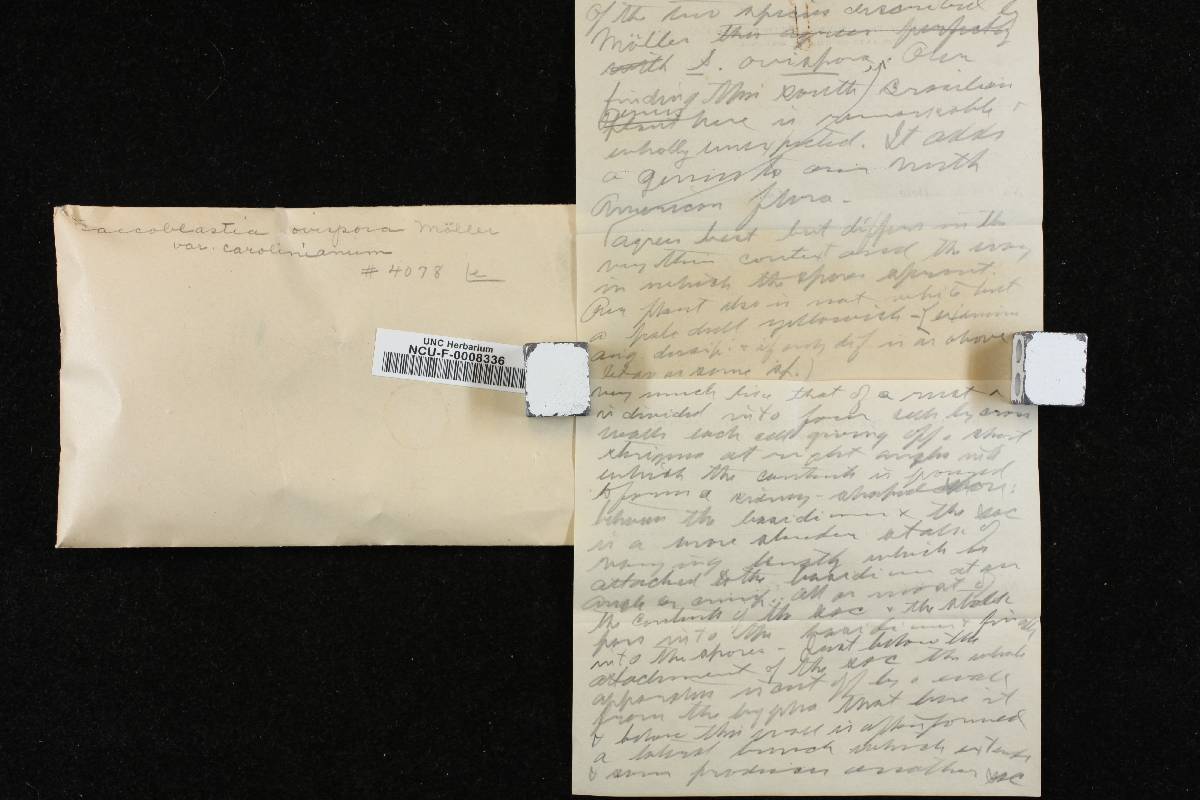 Saccoblastia ovispora Möller
var. carolinianum
# 4078
UNC Herbarium
NCU-F-0008336
Of the two species described by
Möller this agrees perfectly
with S. ovispora. Our
finding this south Brazilian
genus
plant here is remarkable &
wholly unexpected. It adds
a genus to our North
American flora.
(agrees best but differs in the
very thin context and the way
in which the spores sprout.
Our plant also is not white but
a pale dull yellowish - (examine
orig. descrip. & if only dif. is as above
very much like that of a rust &
is divided into four cells by cross
walls each cell giving off a short
sterigma at right angles into
which the contents is poured
to form a kidney-shaped spore:
between the basidium & the sac
is a more slender stalk of
varying length which is
attached to the basidium at an
angle all or most of
the contents of the sac & the stalk
pass into the basidium & finally
into the spores - Just below the
attachment of the sac the whole
apparatus is cut off by a wall
from the hypha that bore it
& before this wall is often formed
a lateral branch which extends
& soon produces another sac